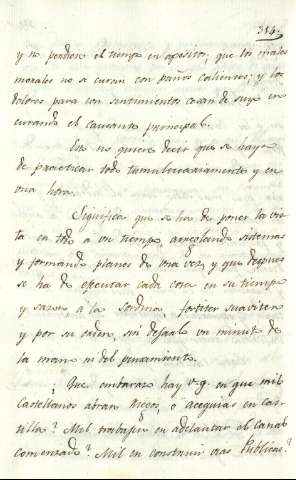 384.
y no perder el tiempo en apósitos, que los males
morales no se curan con paños calientes; y los
dolores para con sentimientos cesan de suyo en
curando el causante principal.
Esto no quiere decir que se haya
de practicar todo tumultuariamente y en
una hora.
Significa que se ha de poner la vis
ta en todo a un tiempo, arreglando sistemas
y formando planes de una vez, y que despues
se ha de efectuar cada cosa en su tiempo
y sazon á la sordina, fortiter suaviter
y por su orden, sin dejarlo un minuto de
la mano ni del pensamiento.
¿Que embarazo hay v.g. en que mil
Castellanos abran Riegos, ó acequias en Cas
tilla? Mil trabajen en adelantar el Canal
comenzado? Mil en construir vias Publicas?